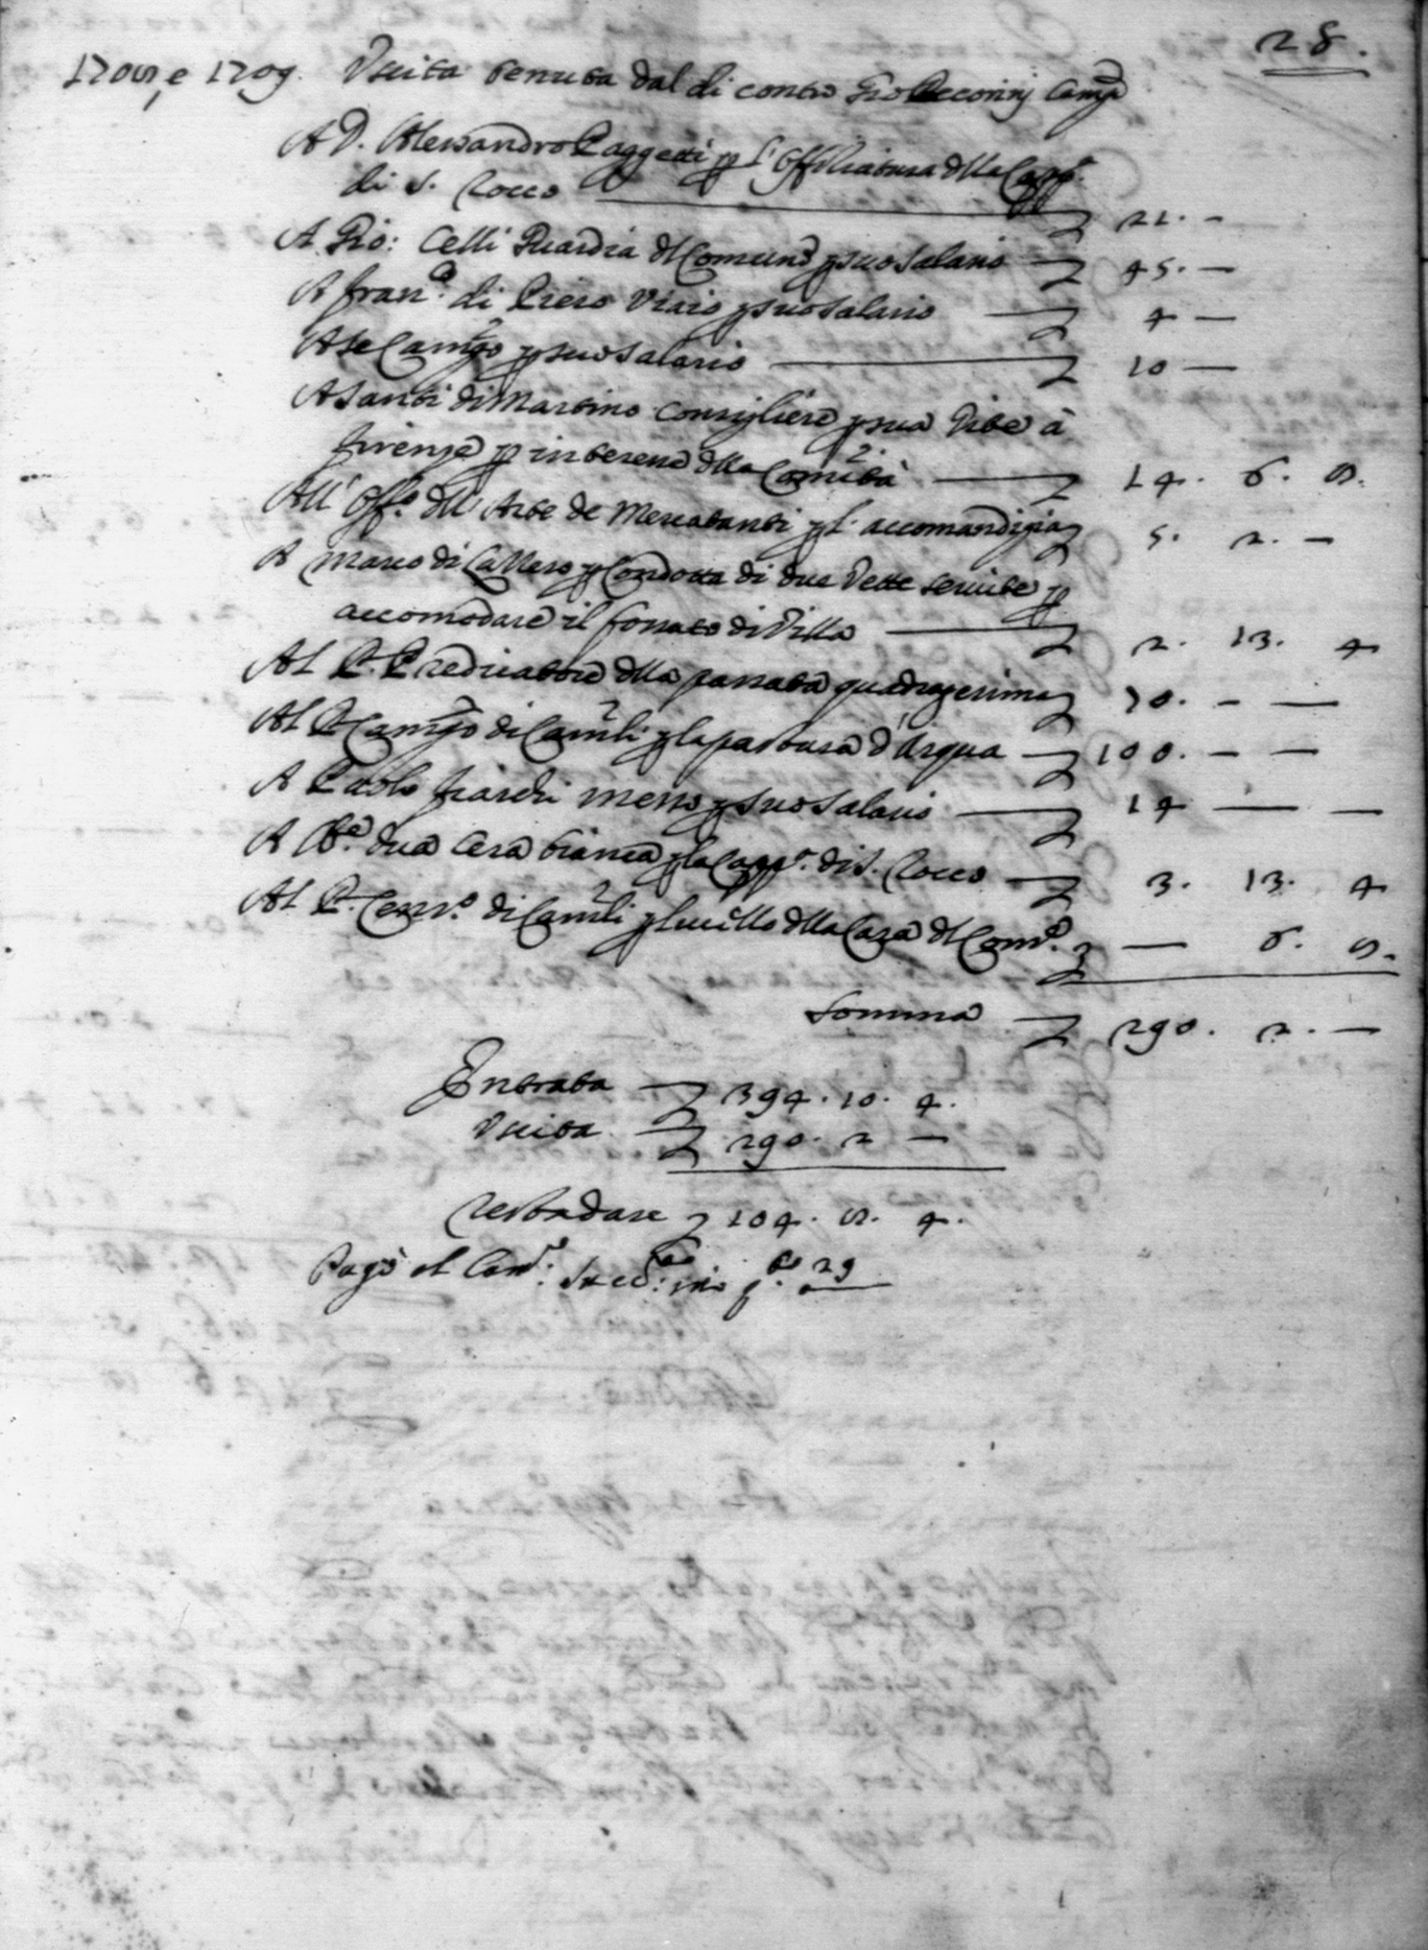 28.
1708, e 1709. Uscita tenuta dal di contro Gio Ceccorinj Camo
A D. Alessandro Paggetti p l'Offitiatura dlla Capp.a
di S. Rocco 21. -
A Gio: Celli Guardia dl Comune p suo salario 45. -
A Fran.co di Piero Viaio p suo salario 4 -
A se Camgo p suo salario 10 -
A Santi di Martino Consigliere p sua Gite à
Firenze p interesse dlla Comità 14. 6. 8.
All' Off.o dll' Arte de Mercatanti p l' accomandigia 5. 2. -
A Marco di p Condotta di due Vette seruite p
accomodare il fossato di Villa 2. 13. 4
Al P. Predicatore dlla passata quadragesima 70. - -
Al P Camgo di Camli p la pastura d'Arqua 100. - -
A Paolo Fiaschi messo p suo salario 14 - -
A lb.e dua Cera bianca p la Capp.a di S. Rocco 3. 13. 4
Al P. di Camli p liuello dlla Casa dl Com.e - 6. 8.
Somma 290. 2. -
Entrata 394. 10. 4.
Uscita 290. 2 -
Resta dare 104. 8. 4.
Pagò al Cam.o: 29